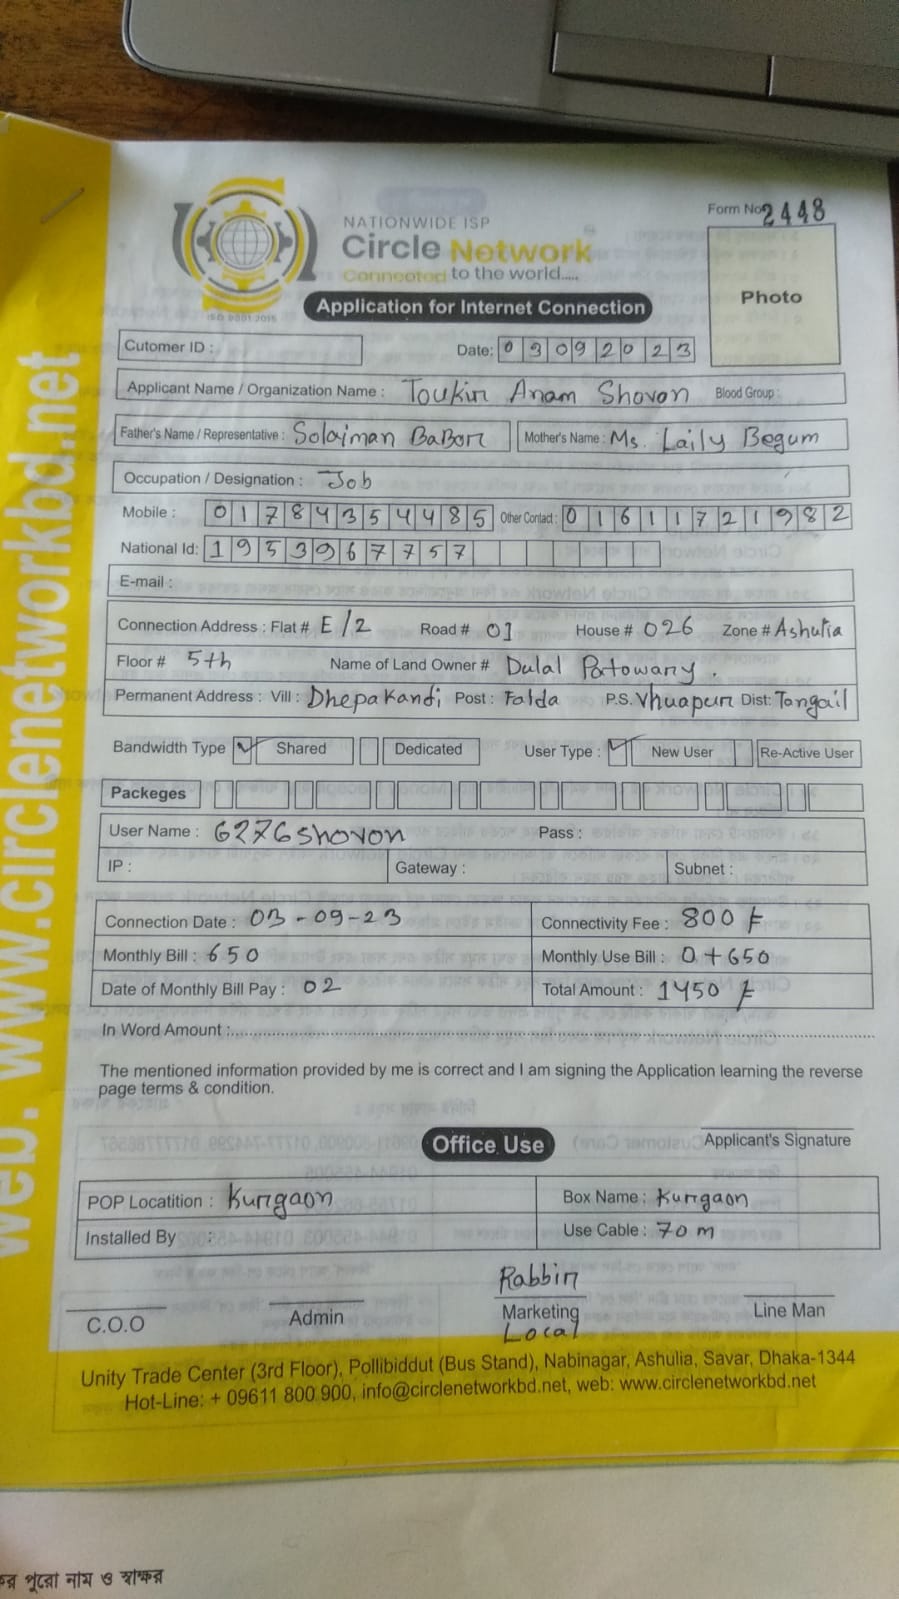 Form No 2448
NATIONWIDE ISP
Circle Network
Connected to the world.....
ISO 9001:2015
Application for Internet Connection
Photo
Cutomer ID :
Date: 03092023
Applicant Name / Organization Name : Toukir Anam Shovon Blood Group :
Father's Name / Representative : Solaiman BaBor Mother's Name : Ms. Laily Begum
Occupation / Designation : Job
Mobile : 01784354485 Other Contact : 01611721982
National Id: 1953967757
E-mail :
Connection Address : Flat # E/2 Road # 01 House # 026 Zone # Ashulia
Floor # 5th Name of Land Owner # Dulal Patowary.
Permanent Address : Vill : Dhepakandi Post : Falda P.S. Vhuapur Dist: Tangail
Bandwidth Type Shared Dedicated User Type : New User Re-Active User
Packeges
User Name : 6276shovon Pass :
IP : Gateway : Subnet :
Connection Date : 03-09-23 Connectivity Fee : 800
Monthly Bill : 650 Monthly Use Bill : 0+650
Date of Monthly Bill Pay : 02 Total Amount : 1450
In Word Amount :
The mentioned information provided by me is correct and I am signing the Application learning the reverse
page terms & condition.
Applicant's Signature
Office Use
POP Locatition : Kurrgaon Box Name : Kurrgaon
Installed By : Use Cable : 70 m
Rabbin
C.O.O Admin Marketing Line Man
Local
Unity Trade Center (3rd Floor), Pollibiddut (Bus Stand), Nabinagar, Ashulia, Savar, Dhaka-1344
Hot-Line: + 09611 800 900, info@circlenetworkbd.net, web: www.circlenetworkbd.net
web: www.circlenetworkbd.net
পুরো নাম ও স্বাক্ষর